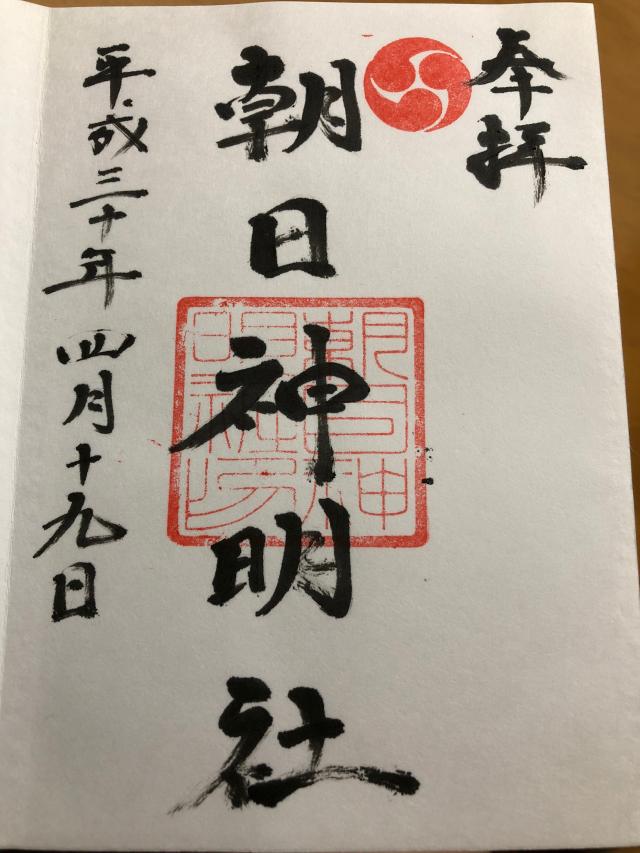 奉拝
朝日神明社
朝日神
明社印
平成三十年四月十九日